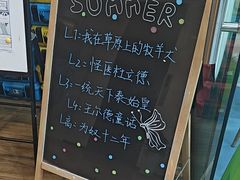 SUMMER
L1:我在草原上的牧羊犬
L2:怪医杜立德
L3:统天下秦始皇
L4:王尔德童话
L高:为奴十二年